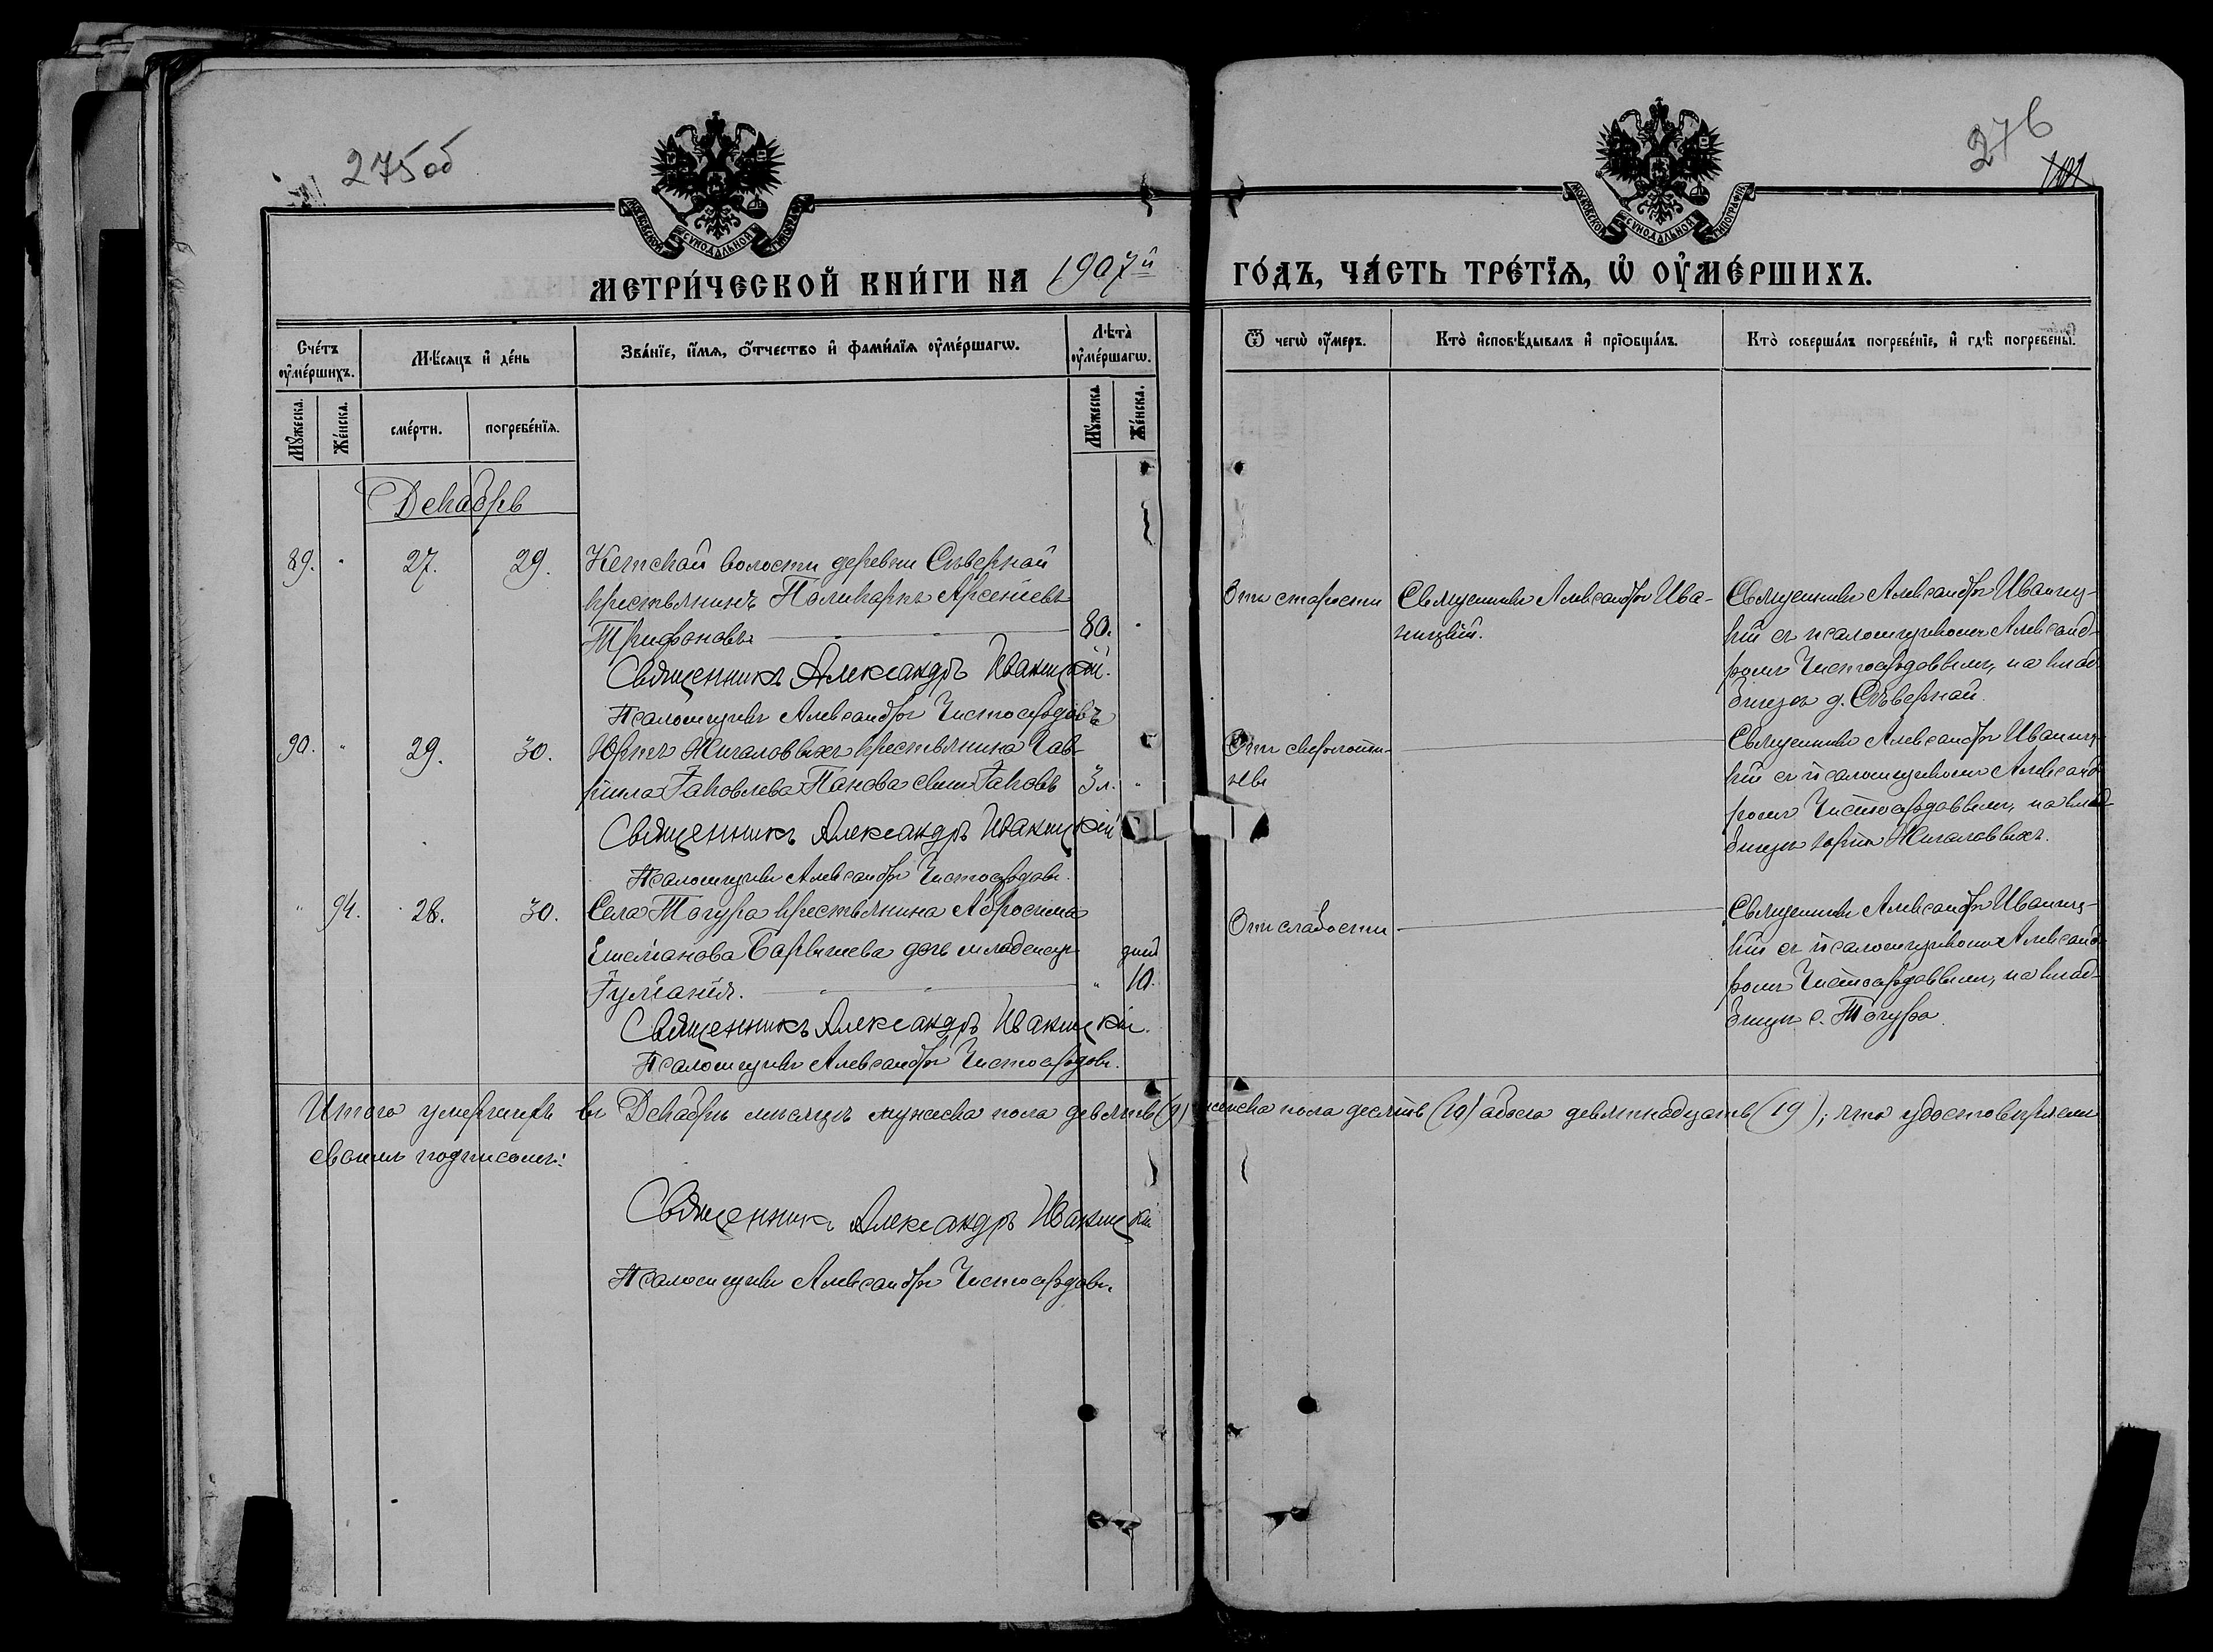 275 об
276
МОСКОВСКОЙ СѴНОДАЛЬНОЙ ТИПОГРАФІИ
МОСКОВСКОЙ СѴНОДАЛЬНОЙ ТИПОГРАФІИ
МЕТРИ́ЧЕСКОЙ КНИ́ГИ НА 1907й ГО́ДЪ, ЧА́СТЬ ТРЕ́ТІѦ, Ѡ҆ ОУ҆МЕ́РШИХЪ.
Сче́тъ оу҆ме́ршихъ.
Мѣ́сяцъ и҆ де́нь
Зва́нїе, и҆́мѧ, ѻ҆́тчество и҆ фами́лїѧ оу҆ме́ршагѡ.
Лѣ́та оу҆ме́ршагѡ.
Ѿ чегѡ̀ оу҆́меръ.
Кто̀ и҆сповѣ́дывалъ и҆ прїѻбща́лъ.
Кто̀ соверша́лъ погребе́нїе, и҆ гдѣ̀ погребе́ны.
Мꙋ́жеска.
Же́нска.
сме́рти.
погребе́нїѧ.
Мꙋ́жеска.
Же́нска.
Декабрь
89. " 27. 29. Кетской волости деревни Сѣверной
крестьянинъ Поликарпъ Арсеніевъ
Трифоновъ 80. "
Священникъ Александръ Иваницкій.
Псаломщикъ Александръ Чистосердовъ
Отъ старости
Священникъ Александръ Ива-
ницкій.
Священникъ Александръ Иваниц-
кій съ псаломщикомъ Александ-
ромъ Чистосердовымъ, на клад-
бищѣ д. Сѣверной.
90. " 29. 30. Юртъ Жигаловыхъ крестьянина Гав-
ріила Іаковлева Панова сынъ Іаковъ 3 л. "
Священникъ Александръ Иваницкій
Псаломщикъ Александръ Чистосердовъ.
Священникъ Александръ Иваниц-
кій съ псаломщикомъ Александ-
ромъ Чистосердовымъ, на клад-
бищѣ юртъ Жигаловыхъ.
" 94. 28. 30. Села Тогура крестьянина Абросима
Барышева дочь младенецъ дней
Іуліанія. " 10.
Священникъ Александръ Иваницкій.
Псаломщикъ Александръ Чистосердовъ.
Отъ слабости
Священникъ Александръ Иваниц-
кій съ псаломщикомъ Александ-
ромъ Чистосердовымъ, на клад-
бищѣ с. Тогура.
Итого умершихъ въ Декабрѣ мѣсяцѣ мужеска пола девять (9) женска пола десять (10) обоего девятнадцать (19); что удостовѣряемъ
своимъ подписомъ:
Священникъ Александръ Иваницкій
Псаломщикъ Александръ Чистосердовъ.